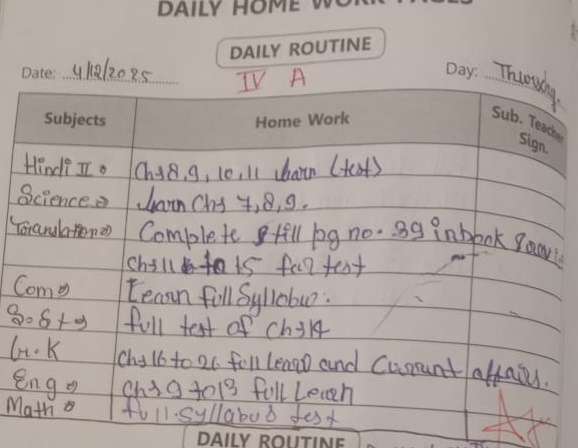 DAILY HOME WORK PAGES
DAILY ROUTINE
Date: 4/12/2025
IV A
Day: Thursday.
Subjects Home Work Sub. Teacher Sign.
Hindi II Ch 8, 9, 10, 11 learn (test)
Science learn Chs 7, 8, 9.
Translation Complete till pg no. 39 in book &
Ch 11 to 15 for test
Com Learn full Syllabus.
S.St full test of Ch 14
G.K Ch 16 to 26 full learn and Current affairs.
Eng Ch 9 to 13 full Learn
Math full syllabus test
DAILY ROUTINE